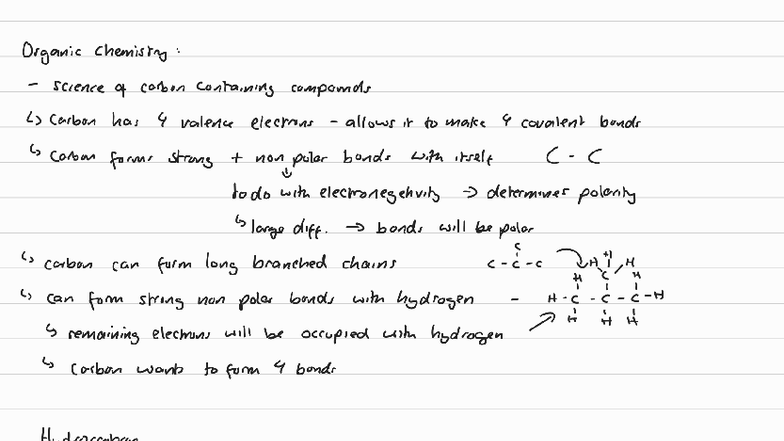 Organic Chemistry:
- science of carbon containing compounds
↳ Carbon has 4 valence electrons - allows it to make 4 covalent bonds
↳ Carbon forms strong + non polar bonds with itself C - C
↓
to do with electronegativity → determines polarity
↳ large diff. → bonds will be polar
↳ carbon can form long branched chains
C
C - C - C
↳ can form strong non polar bonds with hydrogen -
H H H
H C H
H - C - C - C - H
H H H
↳ remaining electrons will be occupied with hydrogen
↳ Carbon wants to form 4 bonds